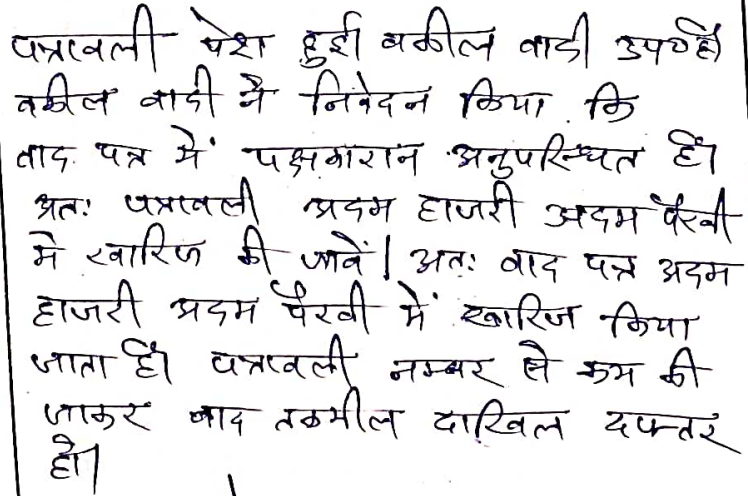 पत्रावली पेश हुई। वकील वादी उप० है।
वकील वादी ने निवेदन किया कि
वाद पत्र में पक्षकारान अनुपस्थित हैं।
अतः पत्रावली अदम हाजरी अदम पैरवी
मे खारिज की जावें। अतः वाद पत्र अदम
हाजरी अदम पैरवी में खारिज किया
जाता है। पत्रावली नम्बर से कम की
जाकर बाद तकमील दाखिल दफ्तर
हो।